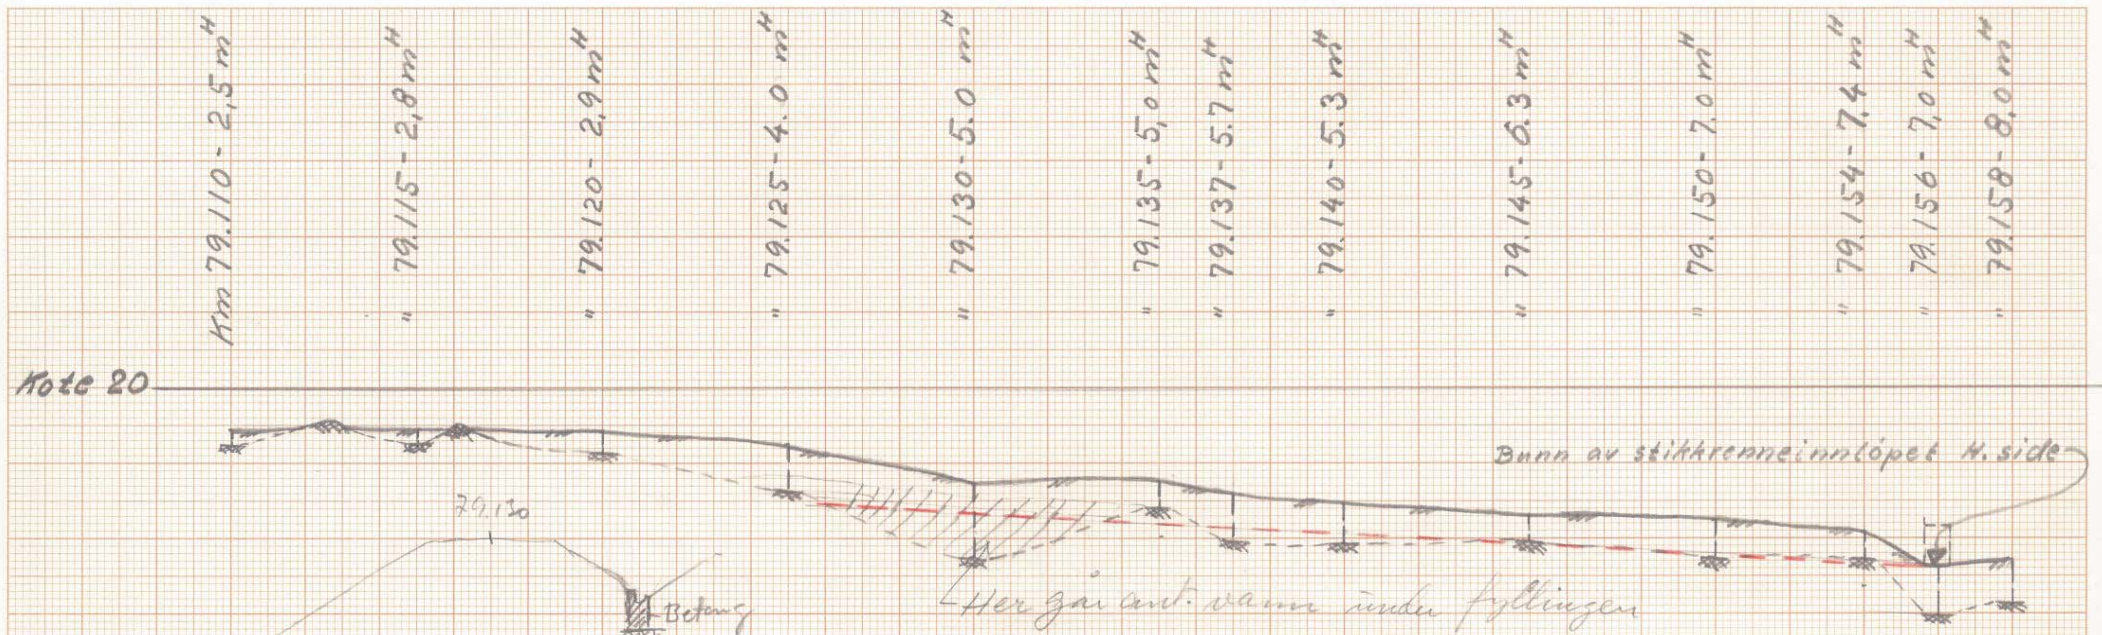 Km 79.110 - 2,5 m H
" 79.115 - 2,8 m H
" 79.120 - 2,9 m H
" 79.125 - 4.0 m H
" 79.130 - 5.0 m H
" 79.135 - 5,0 m H
" 79.137 - 5.7 m H
" 79.140 - 5.3 m H
" 79.145 - 6.3 m H
" 79.150 - 7.0 m H
" 79.154 - 7,4 m H
" 79.156 - 7,0 m H
" 79.158 - 8,0 m H
Kote 20
Bunn av stikkrenneinnlöpet H. side
79.130
Betong
Her går ant. vann under fyllingen